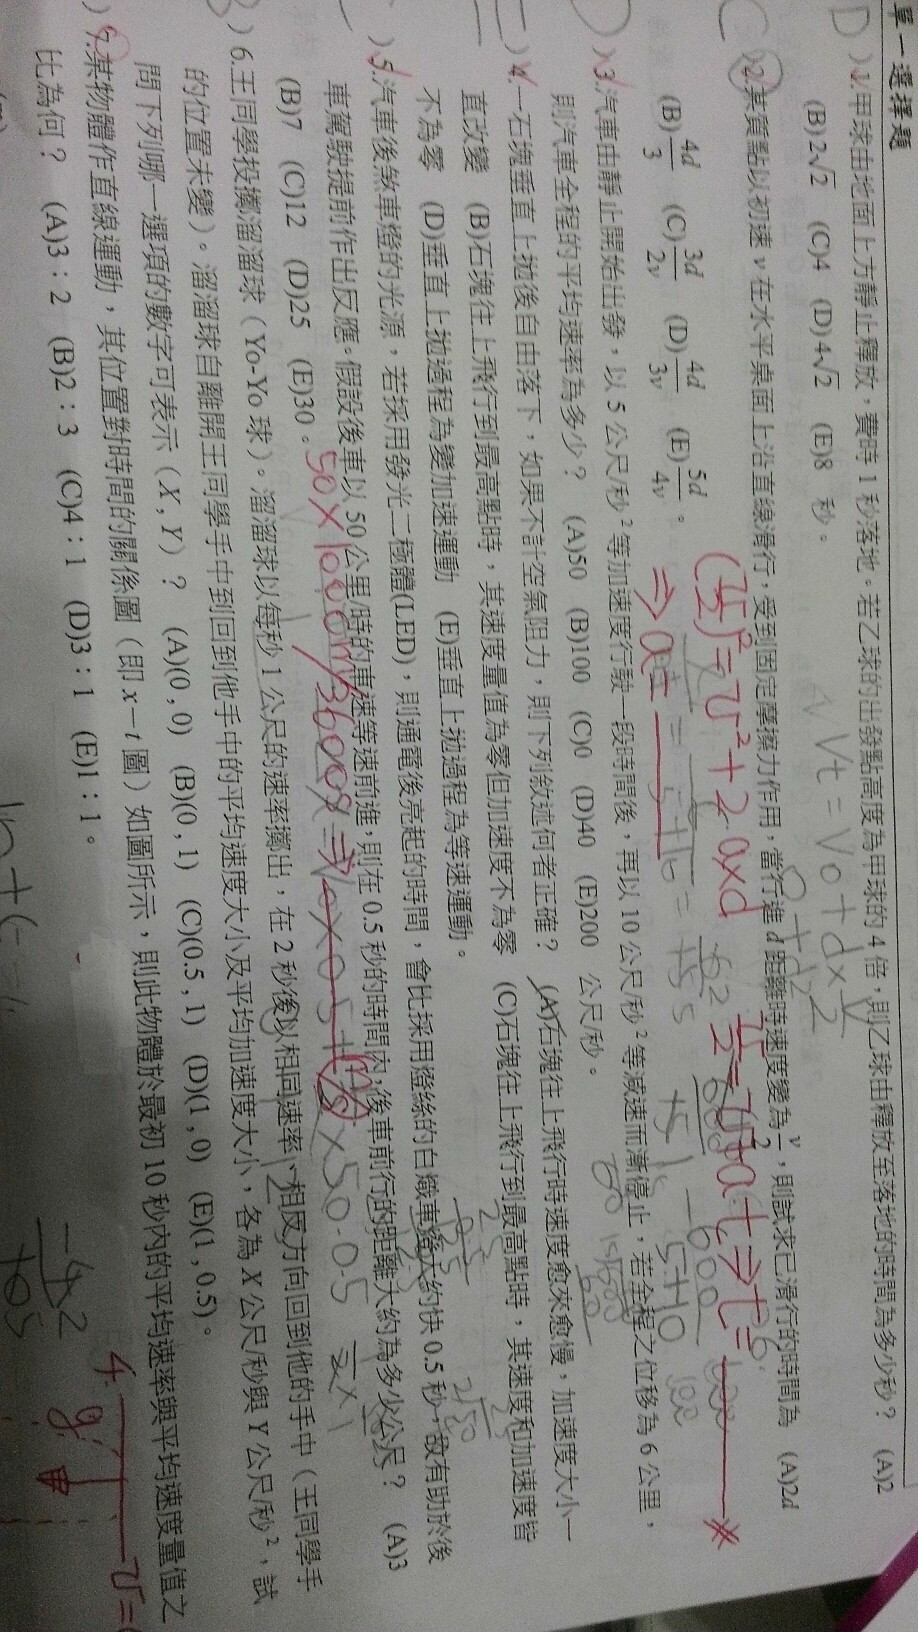 單一選擇題
D )1.甲球由地面上方靜止釋放,費時 1 秒落地。若乙球的出發點高度為甲球的 4 倍,則乙球由釋放至落地的時間為多少秒? (A)2
(B)2√2 (C)4 (D)4√2 (E)8 秒。
Vt = Vo +
C )2.某質點以初速 v 在水平桌面上沿直線滑行,受到固定摩擦力作用,當行進 d 距離時速度變為 v/2,則試求已滑行的時間為 (A)2d
(B)4d/3 (C)3d/2v (D)4d/3v (E)5d/4v。
(v/2)² = v² + 2·a×d
v/2 = v + at ⇒ t =
⇒ a =
)3.汽車由靜止開始出發,以 5 公尺/秒² 等加速度行駛一段時間後,再以 10 公尺/秒² 等減速而漸停止,若全程之位移為 6 公里,
則汽車全程的平均速率為多少? (A)50 (B)100 (C)0 (D)40 (E)200 公尺/秒。
)4.一石塊垂直上拋後自由落下,如果不計空氣阻力,則下列敘述何者正確? (A)石塊往上飛行時速度愈來愈慢,加速度大小一
直改變 (B)石塊往上飛行到最高點時,其速度量值為零但加速度不為零 (C)石塊往上飛行到最高點時,其速度和加速度皆
不為零 (D)垂直上拋過程為變加速運動 (E)垂直上拋過程為等速運動。
)5.汽車後煞車燈的光源,若採用發光二極體(LED),則通電後亮起的時間,會比採用燈絲的白熾車燈大約快 0.5 秒,故有助於後
車駕駛提前作出反應。假設後車以 50 公里/時的車速等速前進,則在 0.5 秒的時間內,後車前行的距離大約為多少公尺? (A)3
(B)7 (C)12 (D)25 (E)30。
50×1000m/3600s
)6.王同學投擲溜溜球(Yo-Yo 球)。溜溜球以每秒 1 公尺的速率擲出,在 2 秒後以相同速率、相反方向回到他的手中(王同學手
的位置未變)。溜溜球自離開王同學手中到回到他手中的平均速度大小及平均加速度大小,各為 X 公尺/秒與 Y 公尺/秒²,試
問下列哪一選項的數字可表示(X,Y)? (A)(0,0) (B)(0,1) (C)(0.5,1) (D)(1,0) (E)(1,0.5)。
)7.某物體作直線運動,其位置對時間的關係圖(即 x-t 圖)如圖所示,則此物體於最初 10 秒內的平均速率與平均速度量值之
比為何? (A)3:2 (B)2:3 (C)4:1 (D)3:1 (E)1:1。
4.
v=
g